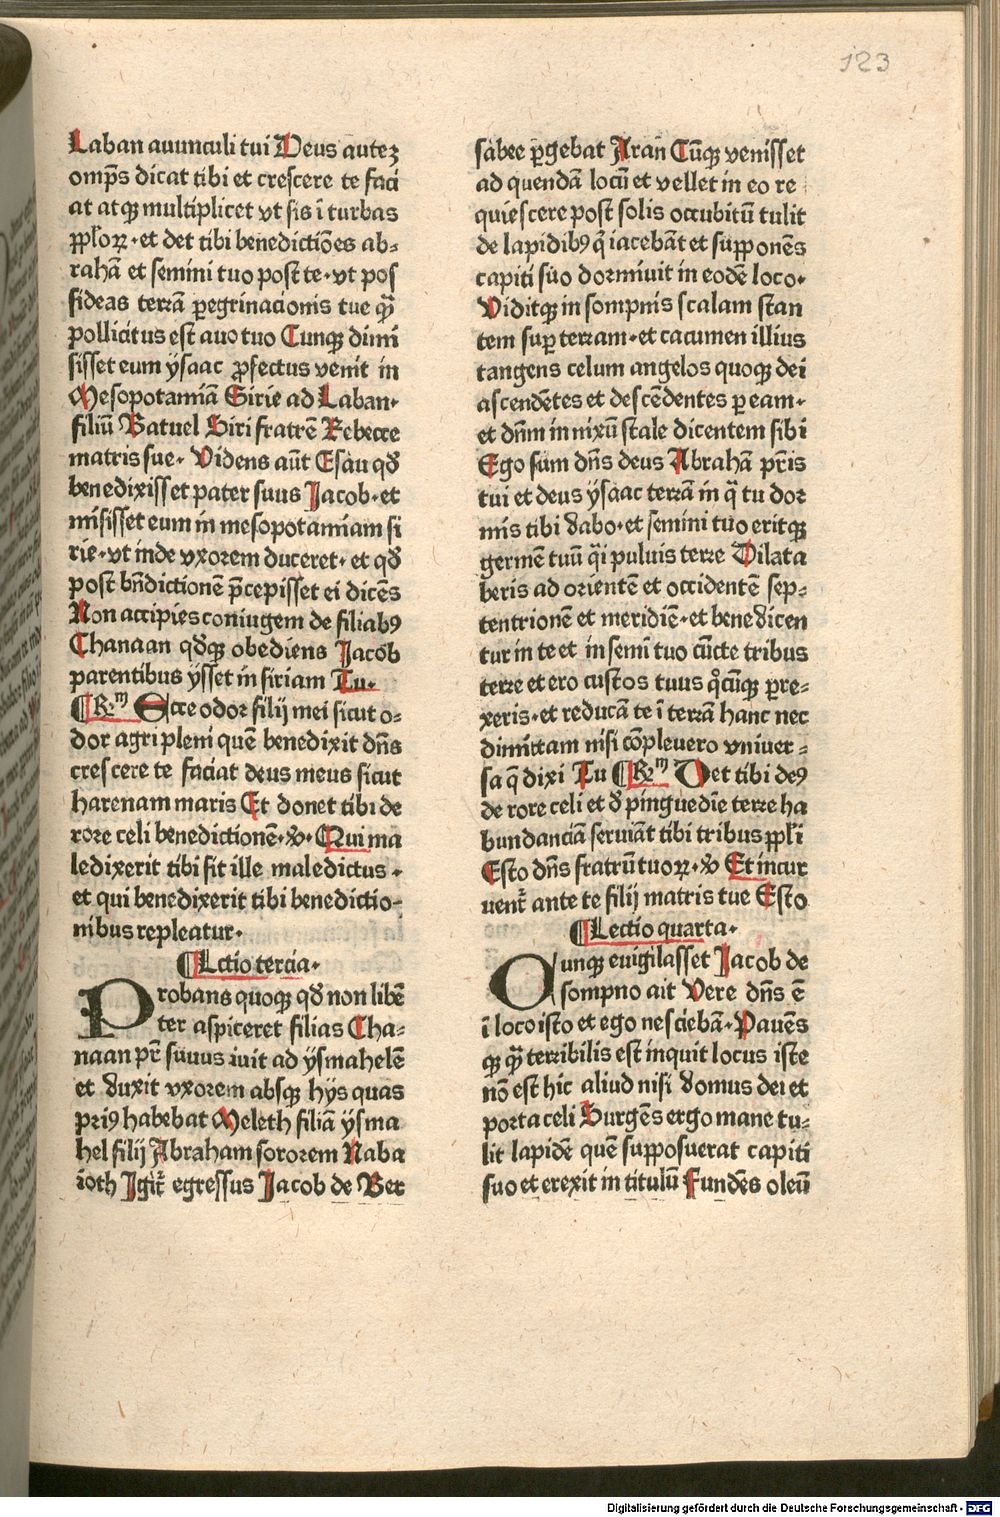 123
Laban auunculi tui Deus autez
omp̄s dicat tibi et crescere te faci
at atqꝫ multiplicet vt sis ī turbas
ppl̓oꝝ · et det tibi benedictiōes ab⸗
rahā et semini tuo post te · vt pos
sideas terrā ꝑegrinacionis tue qᷓꝫ
pollicitus est auo tuo Cunqꝫ dimi
sisset eum ysaac ꝓfectus venit in
Mesopotamiā Sirie ad Laban ·
filiū Batuel Siri fratrē Rebecce
matris sue · Videns aūt Esau qd̓
benedixisset pater suus Jacob · et
misisset eum in mesopotamiam si
rie · vt inde vxorem duceret · et qd̓
post bn̄dictionē p̄cepisset ei dicēs
Non accipies coniugem de filiabꝰ
Chanaan qd̓qꝫ obediens Jacob
parentibus ysset in siriam Tu ·
¶ Rm Ecce odor filij mei sicut o⸗
dor agri pleni quē benedixit dn̄s
crescere te faciat deus meus sicut
harenam maris Et donet tibi de
rore celi benedictionē · v̓ · Qui ma
ledixerit tibi sit ille maledictus ·
et qui benedixerit tibi benedictio⸗
nibus repleatur ·
¶ Lctio tercia ·
Probans quoqꝫ qd̓ non libē
ter aspiceret filias Cha⸗
naan pr̄ suuus iuit ad ysmahelē
et duxit vxorem absqꝫ hys quas
priꝰ habebat Meleth filiā ysma
hel filij Abraham sororem Naba
ioth Jgit̄ egressus Jacob de Ber
sabee ꝑgebat Aran Cūqꝫ venisset
ad quendā locū et vellet in eo re
quiescere post solis occubitū tulit
de lapidibꝰ q̄ iacebāt et supponēs
capiti suo dormiuit in eodē loco ·
Viditqꝫ in sompnis scalam stan
tem suꝑ terram · et cacumen illius
tangens celum angelos quoqꝫ dei
ascendētes et descēdentes ꝑ eam ·
et dn̄m innixū scale dicentem sibi
Ego sum dn̄s deus Abrahā pr̄is
tui et deus ysaac terrā in q̄ tu dor
mis tibi dabo · et semini tuo eritqꝫ
germē tuū q̄i puluis terre Dilata
beris ad orientē et occidentē sep⸗
tentrionē et meridiē · et benedicen
tur in te et in semi̅ tuo cūcte tribus
terre et ero custos tuus q̊cūqꝫ ꝑre⸗
xeris · et reducā te ī terrā hanc nec
dimittam nisi cōpleuero vniuer⸗
sa q̄ dixi Tu ¶ Rm Det tibi deꝰ
de rore celi et d̓ pinguedīe terre ha
bundanciā seruiāt tibi tribus ppl̓i
Esto dn̄s fratrū tuoꝝ · v̓ Et incur
uent̄ ante te filij matris tue Esto
¶ Lectio quarta ·
Cunqꝫ euigilasset Jacob de
sompno ait Vere dn̄s ē
ī loco isto et ego nesciebā · Pauēs
qꝫ qᷓꝫ terribilis est inquit locus iste
nō est hic aliud nisi domus dei et
porta celi Surgēs ergo mane tu⸗
lit lapidē quē supposuerat capiti
suo et erexit in titulū Fundēs oleū
Digitalisierung gefördert durch die Deutsche Forschungsgemeinschaft - DFG